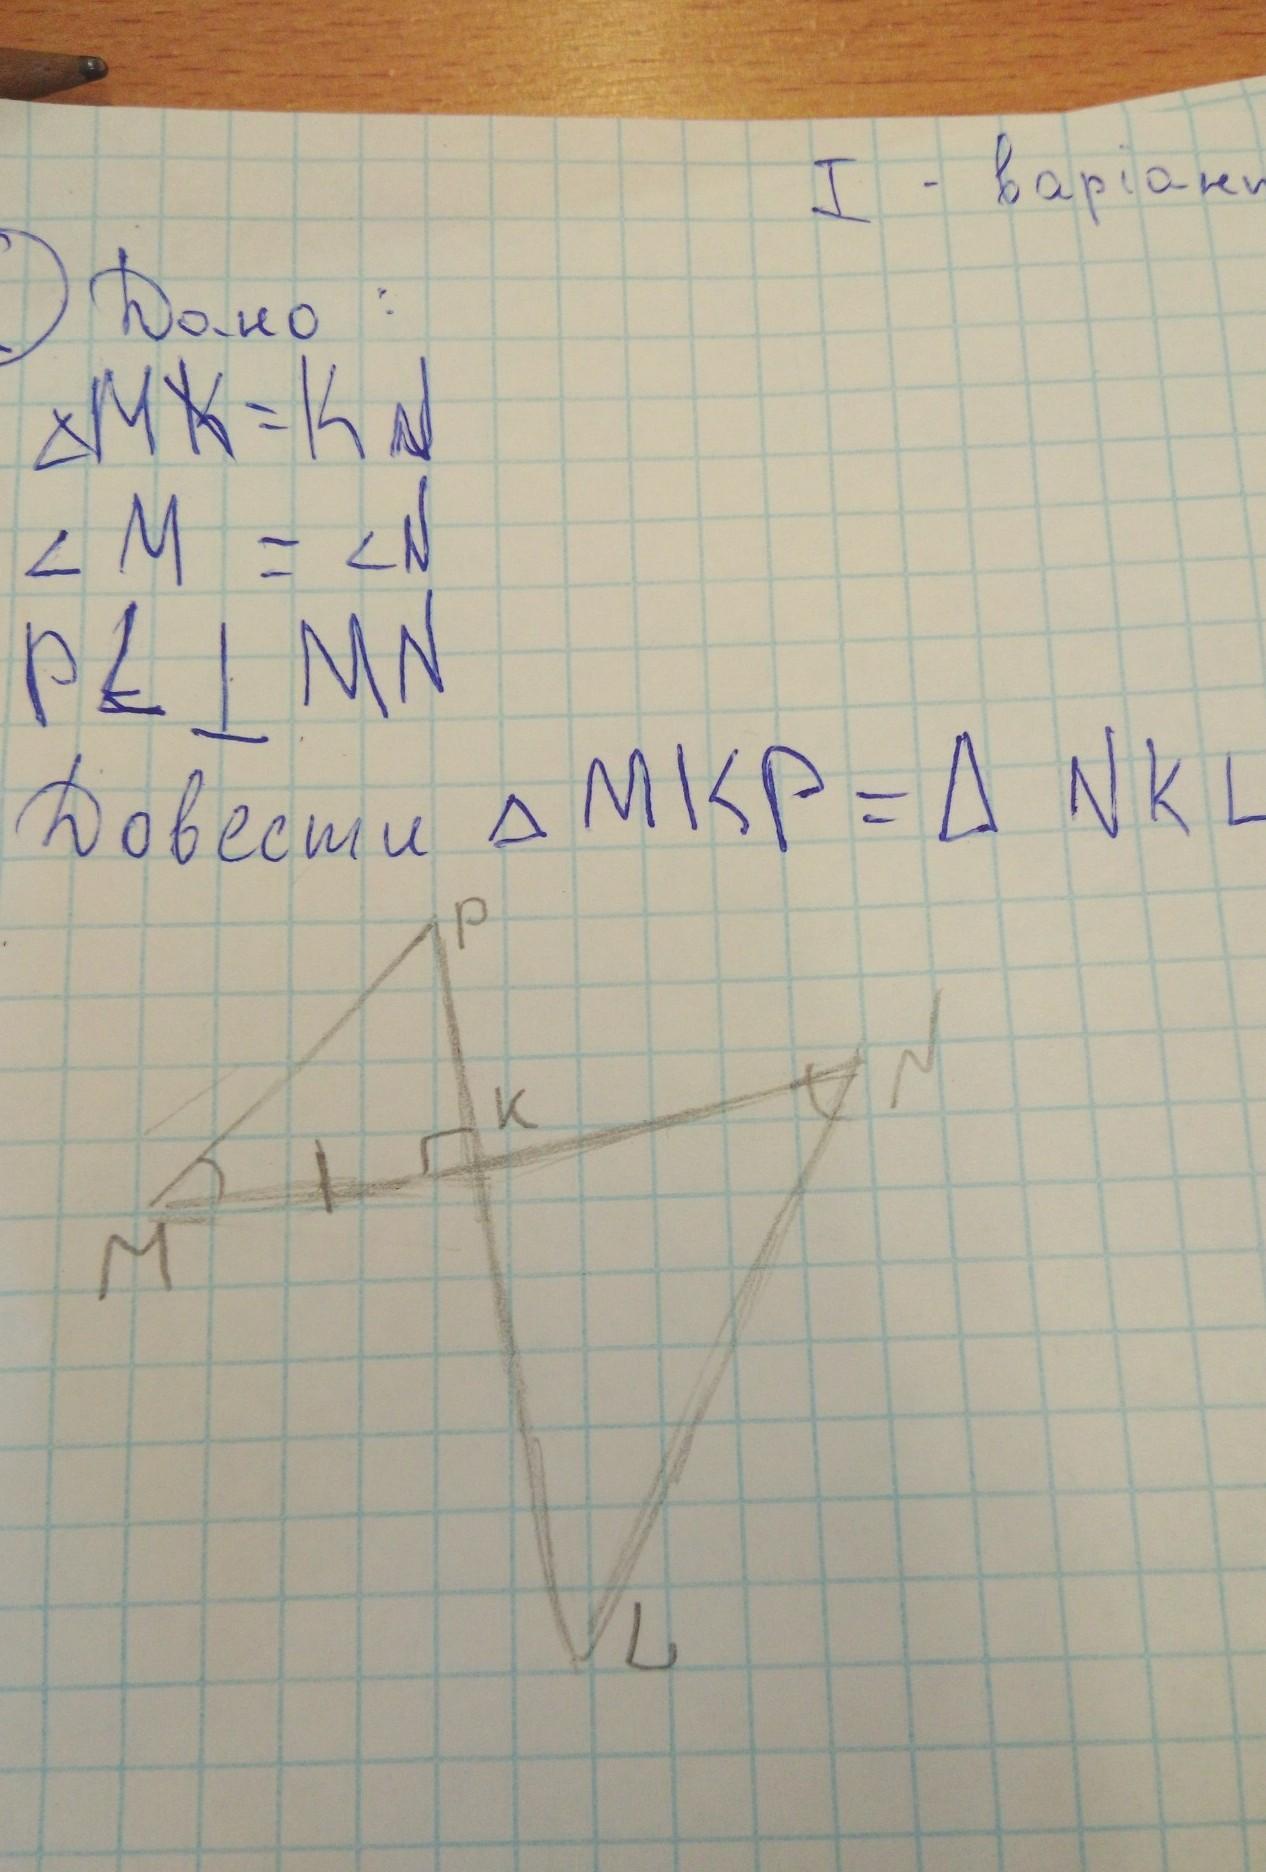 I - варіант
Дано:
△MK=KN
∠M = ∠N
PL ⊥ MN
Довести △MKP = △NKL
P
K
N
M
L